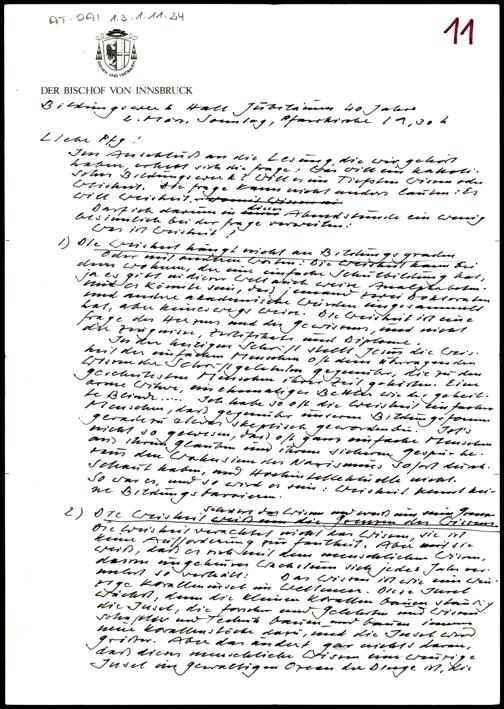 AT-DAI 1.3.1.11.24
11
DIENEN UND VERTRAUEN
DER BISCHOF VON INNSBRUCK
Bildungswerk Hall Jubiläum 40 Jahre
Sonntag, Pfarrkirche 19,30 h
Liebe
Im Anschluß an die Lesung, die wir gehört
haben, erhebt sich die Frage: Was will ein katholi-
sches Bildungswerk? Will es im Tiefsten Wissen oder
Weisheit. Die Frage kann nicht anders lauten: Es
will Weisheit.
Darf ich darum in dieser Abendstunde ein wenig
besinnlich bei der Frage verweilen:
Was ist Weisheit?
1) Die Weisheit hängt nicht an Bildungsgraden
Oder mit anderen Worten: Die Weisheit kann bei
dem wohnen, der eine einfache Schulbildung hat,
ja es gibt in dieser Welt auch weise Analphabeten.
Und es könnte sein, daß jemand zwei Doktorate
und andere akademische Würden eingesammelt
hat, aber keineswegs weise. Die Weisheit ist eine
Frage des Herzens und des Gewissens, und nicht
der Zeugnisse, Zertifikate und Diplome.
In der heiligen Schrift stellt Jesus die Weis-
heit der einfachen Menschen oft dem
Wissen der Schriftgelehrten gegenüber, die zu den
gescheitesten Menschen ihrer Zeit gehörten. Eine
arme Witwe, ein ehemaliger Bettler wie der geheil-
te Blinde..... Ich habe so oft die Weisheit einfacher
Menschen, daß gegenüber unseren
geradezu etwas skeptisch geworden bin. Ist's
nicht so gewesen, daß oft ganz einfache Menschen
aus ihrem Glauben und ihrem sicheren Gespür he-
raus den Wahnsinn des Nazismus sofort durch-
schaut haben, und Hochintellektuelle nicht.
So war es, und so wird es sein: Weisheit kennt kei-
ne Bildungsbarrieren.
schätzt das Wissen und weiß um seine Grenzen
2) Die Weisheit weiß um die Grenzen des Wissens
Die Weisheit verachtet nicht das Wissen, sie ist
keine Aufforderung zur Faulheit. Aber sie
weiß, daß es sich mit dem menschlichen Wissen,
dessen ungeheures Wachstum sich jedes Jahr ver-
mehrt so verhält: Das Wissen ist wie eine win-
zige Koralleninsel im Weltmeer. Diese Insel
wächst, denn die kleinen Korallen bauen ständig
die Insel, die Forscher und Gelehrten und Wissen-
schaftler und Techniker bauen und bauen immer
neue Korallenstöcke dazu, und die Insel wird
größer. Aber das ändert gar nichts daran,
daß dieses menschliche Wissen eine winzige
Insel im gewaltigen Ozean der Dinge ist, die